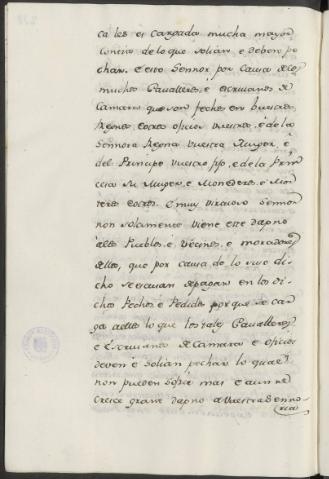 ca les es cargada mucha mayor
contia de lo que solian, e deben pe
char. E esto Sennor por causa de los
muchos Cavalleros, e escrivanos de
Camara que son fechos en vuestros
Regnos, e otros oficios vuestros, e de la
Sennora Reyna vuestra Muger, e
del Principe vuestro fijo, e de la Prin
cesa su Muger, e Monederos, e Mon
teros, e otros. E muy virtuoso Sennor
non solamente viene este dapno
a los Pueblos, e Vecinos, e moradores
dellos, que por causa de lo suso di
cho se escusan de pagar en los di
chos Pechos, e Pedidos porque se car
ga a ellos lo que los tales Cavalleros,
e Escrivanos de Camara e oficios
deven e solian pechar lo qual
non pueden sofrir mas e aun re
cresce grant dapno a Vuestra Senno
(ria)